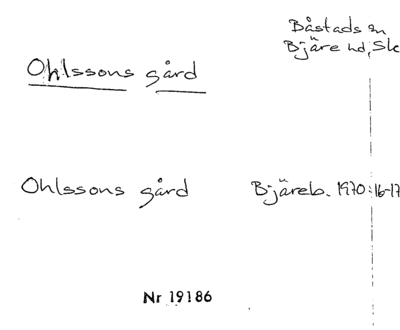 Båstads sn
Bjäre hd, Sk
Ohlssons gård
Ohlssons gård Bjäreb. 1970:16-17
Nr 19186